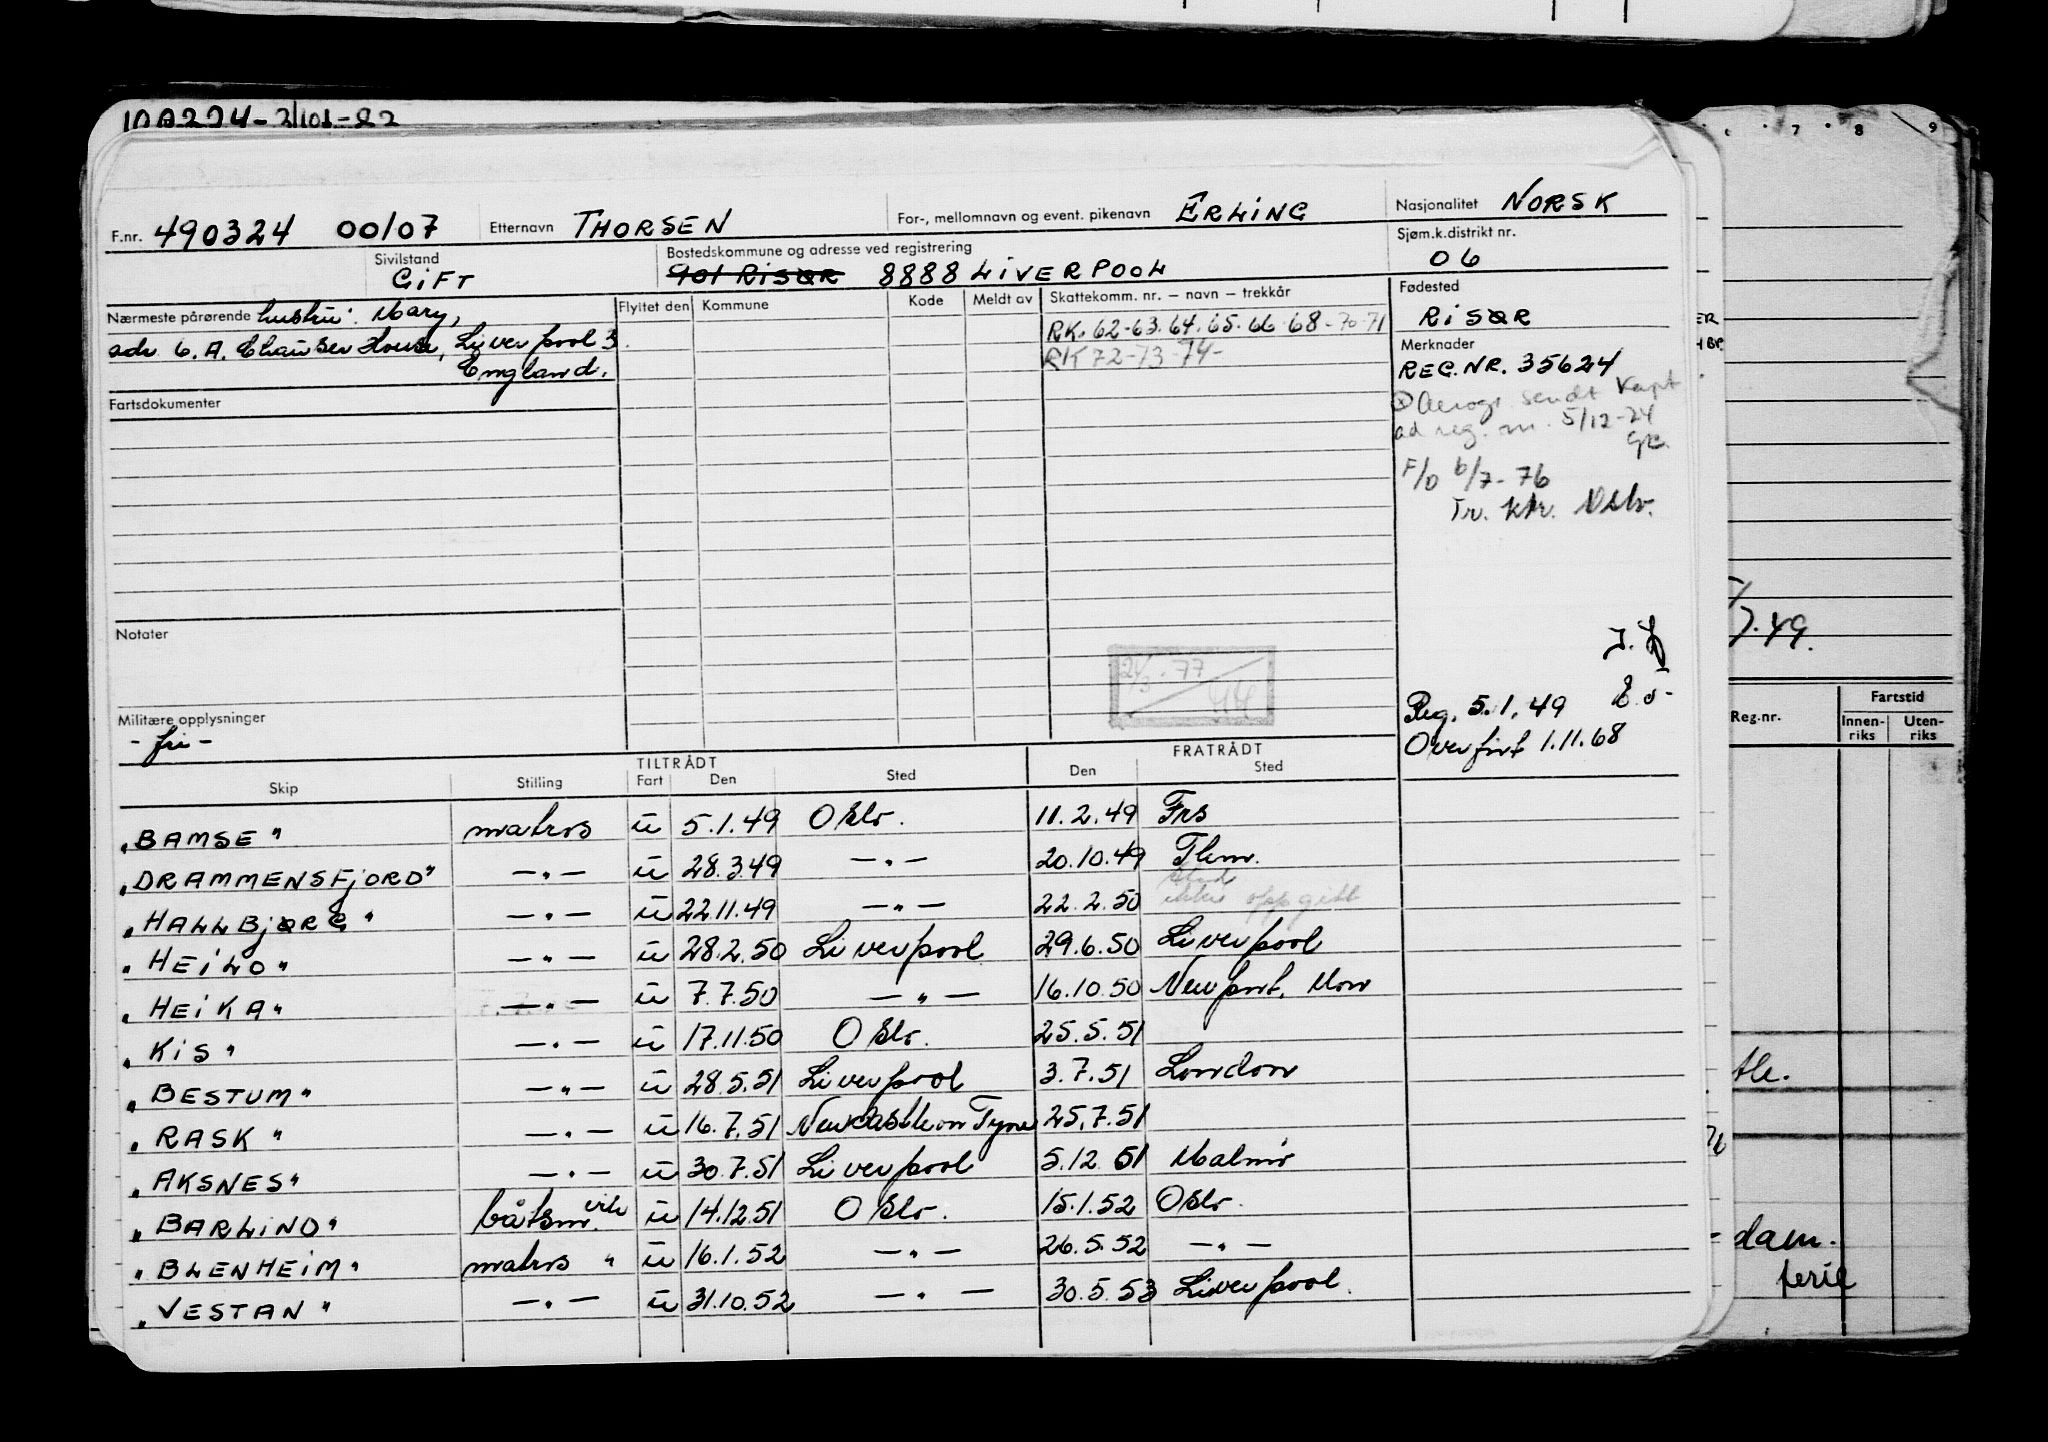 F.nr. 490324 00/07 Etternavn THORSEN For-, mellomnavn og event. pikenavn ERLING Nasjonalitet NORSK
Sivilstand GIFT Bostedskommune og adresse ved registrering 901 RISØR 8888 LIVERPOOL Sjøm.k.distrikt nr. 06
Nærmeste pårørende hustru: Mary,
adr 6. A. Chauser House, Liverpool 3.
England.
Flyttet den Kommune Kode Meldt av Skattekomm. nr. – navn – trekkår
RK. 62-63. 64. 65. 66. 68-70-71
RK 72-73-74-
Fødested
RISØR
Merknader
REG.NR. 35624
Aerogr. sendt Kapt
ad reg. nr. 5/12-74
F/O 6/7-76
Tr. ktr. Oslo.
Fartsdokumenter
Notater
24/3-77
Reg. 5.1.49
Overført 1.11.68
Militære opplysninger
- fri -
TILTRÅDT FRATRÅDT
Skip Stilling Fart Den Sted Den Sted
"BAMSE" matros u 5.1.49 Oslo. 11.2.49 Frs
"DRAMMENSFJORD" —"— u 28.3.49 —"— 20.10.49
"HALLBJØRG" —"— u 22.11.49 —"— 22.2.50 sted ikke oppgitt
"HEILO" —"— u 28.2.50 Liverpool 29.6.50 Liverpool
"HEIKA" —"— u 7.7.50 —"— 16.10.50 Newport, Mon
"KIS" —"— u 17.11.50 Oslo. 25.5.51
"BESTUM" —"— u 28.5.51 Liverpool 3.7.51 London
"RASK" —"— u 16.7.51 Newcastle on Tyne 25.7.51
"AKSNES" —"— u 30.7.51 Liverpool 5.12.51 Malmö
"BARLIND" båtsm. u 14.12.51 Oslo. 15.1.52 Oslo.
"BLENHEIM" matros " u 16.1.52 —"— 26.5.52 —"—
"VESTAN" —"— u 31.10.52 —"— 30.5.53 Liverpool.
7 8 9
7.49.
Reg.nr. Fartstid
Innen-riks Uten-riks
dam.
ferie